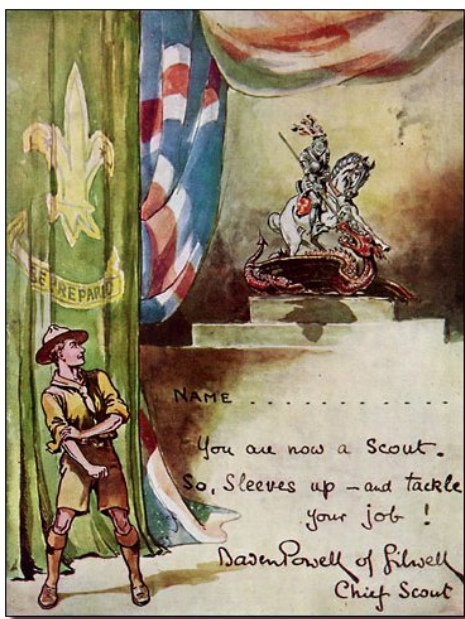 BE PREPARED
NAME . . . . . . . . . . . . .
You are now a Scout.
So, Sleeves up – and tackle
your job !
Baden Powell of Gilwell
Chief Scout